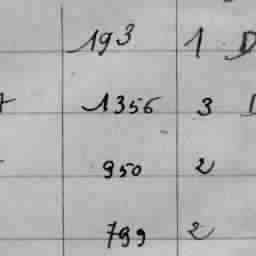 193 1 D
1356 3
950 2
799 2